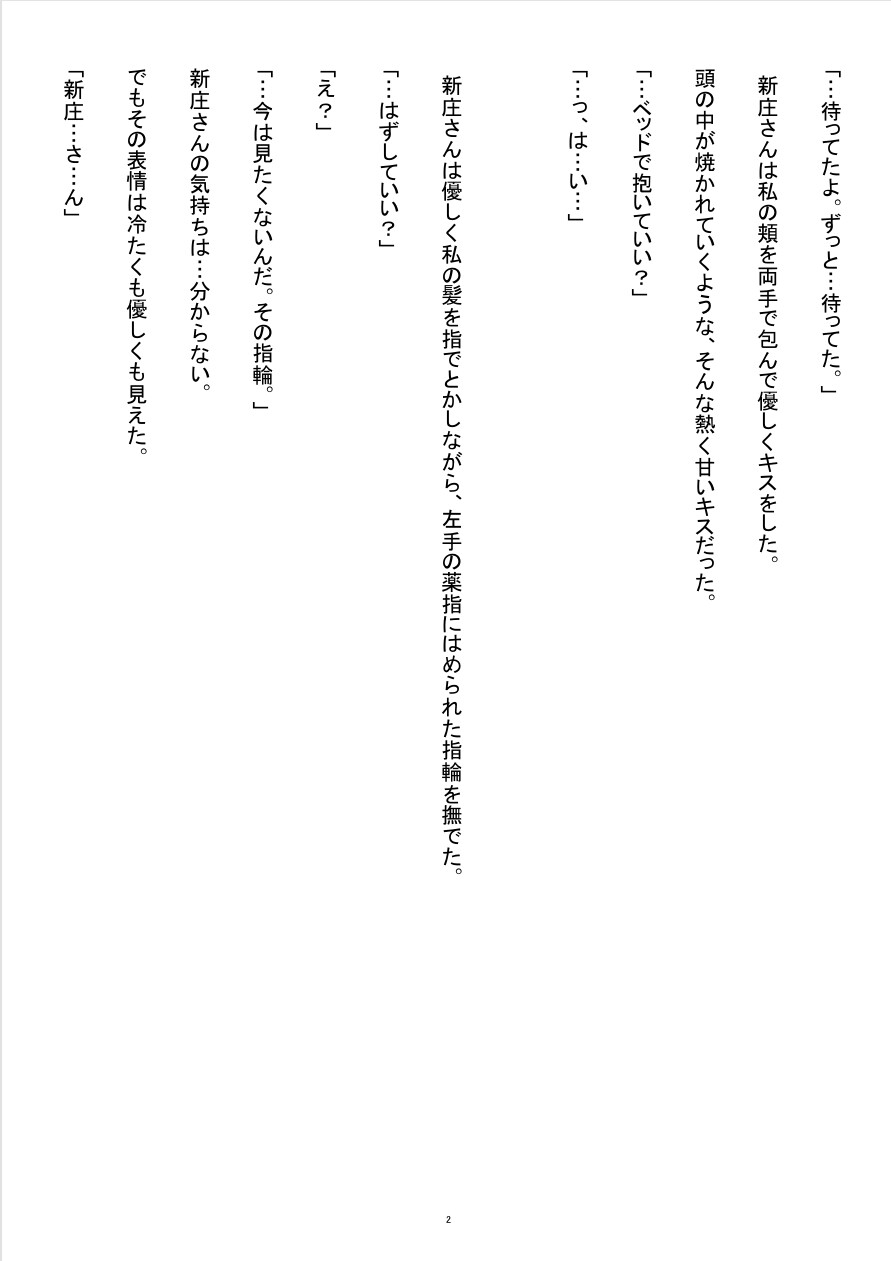 「…待ってたよ。ずっと…待ってた。」
新庄さんは私の頬を両手で包んで優しくキスをした。
頭の中が焼かれていくような、そんな熱く甘いキスだった。
「…ベッドで抱いていい？」
「…っ、は…い…」
新庄さんは優しく私の髪を指でとかしながら、左手の薬指にはめられた指輪を撫でた。
「…はずしていい？」
「え？」
「…今は見たくないんだ。その指輪。」
新庄さんの気持ちは…分からない。
でもその表情は冷たくも優しくも見えた。
「新庄…さ…ん」
2